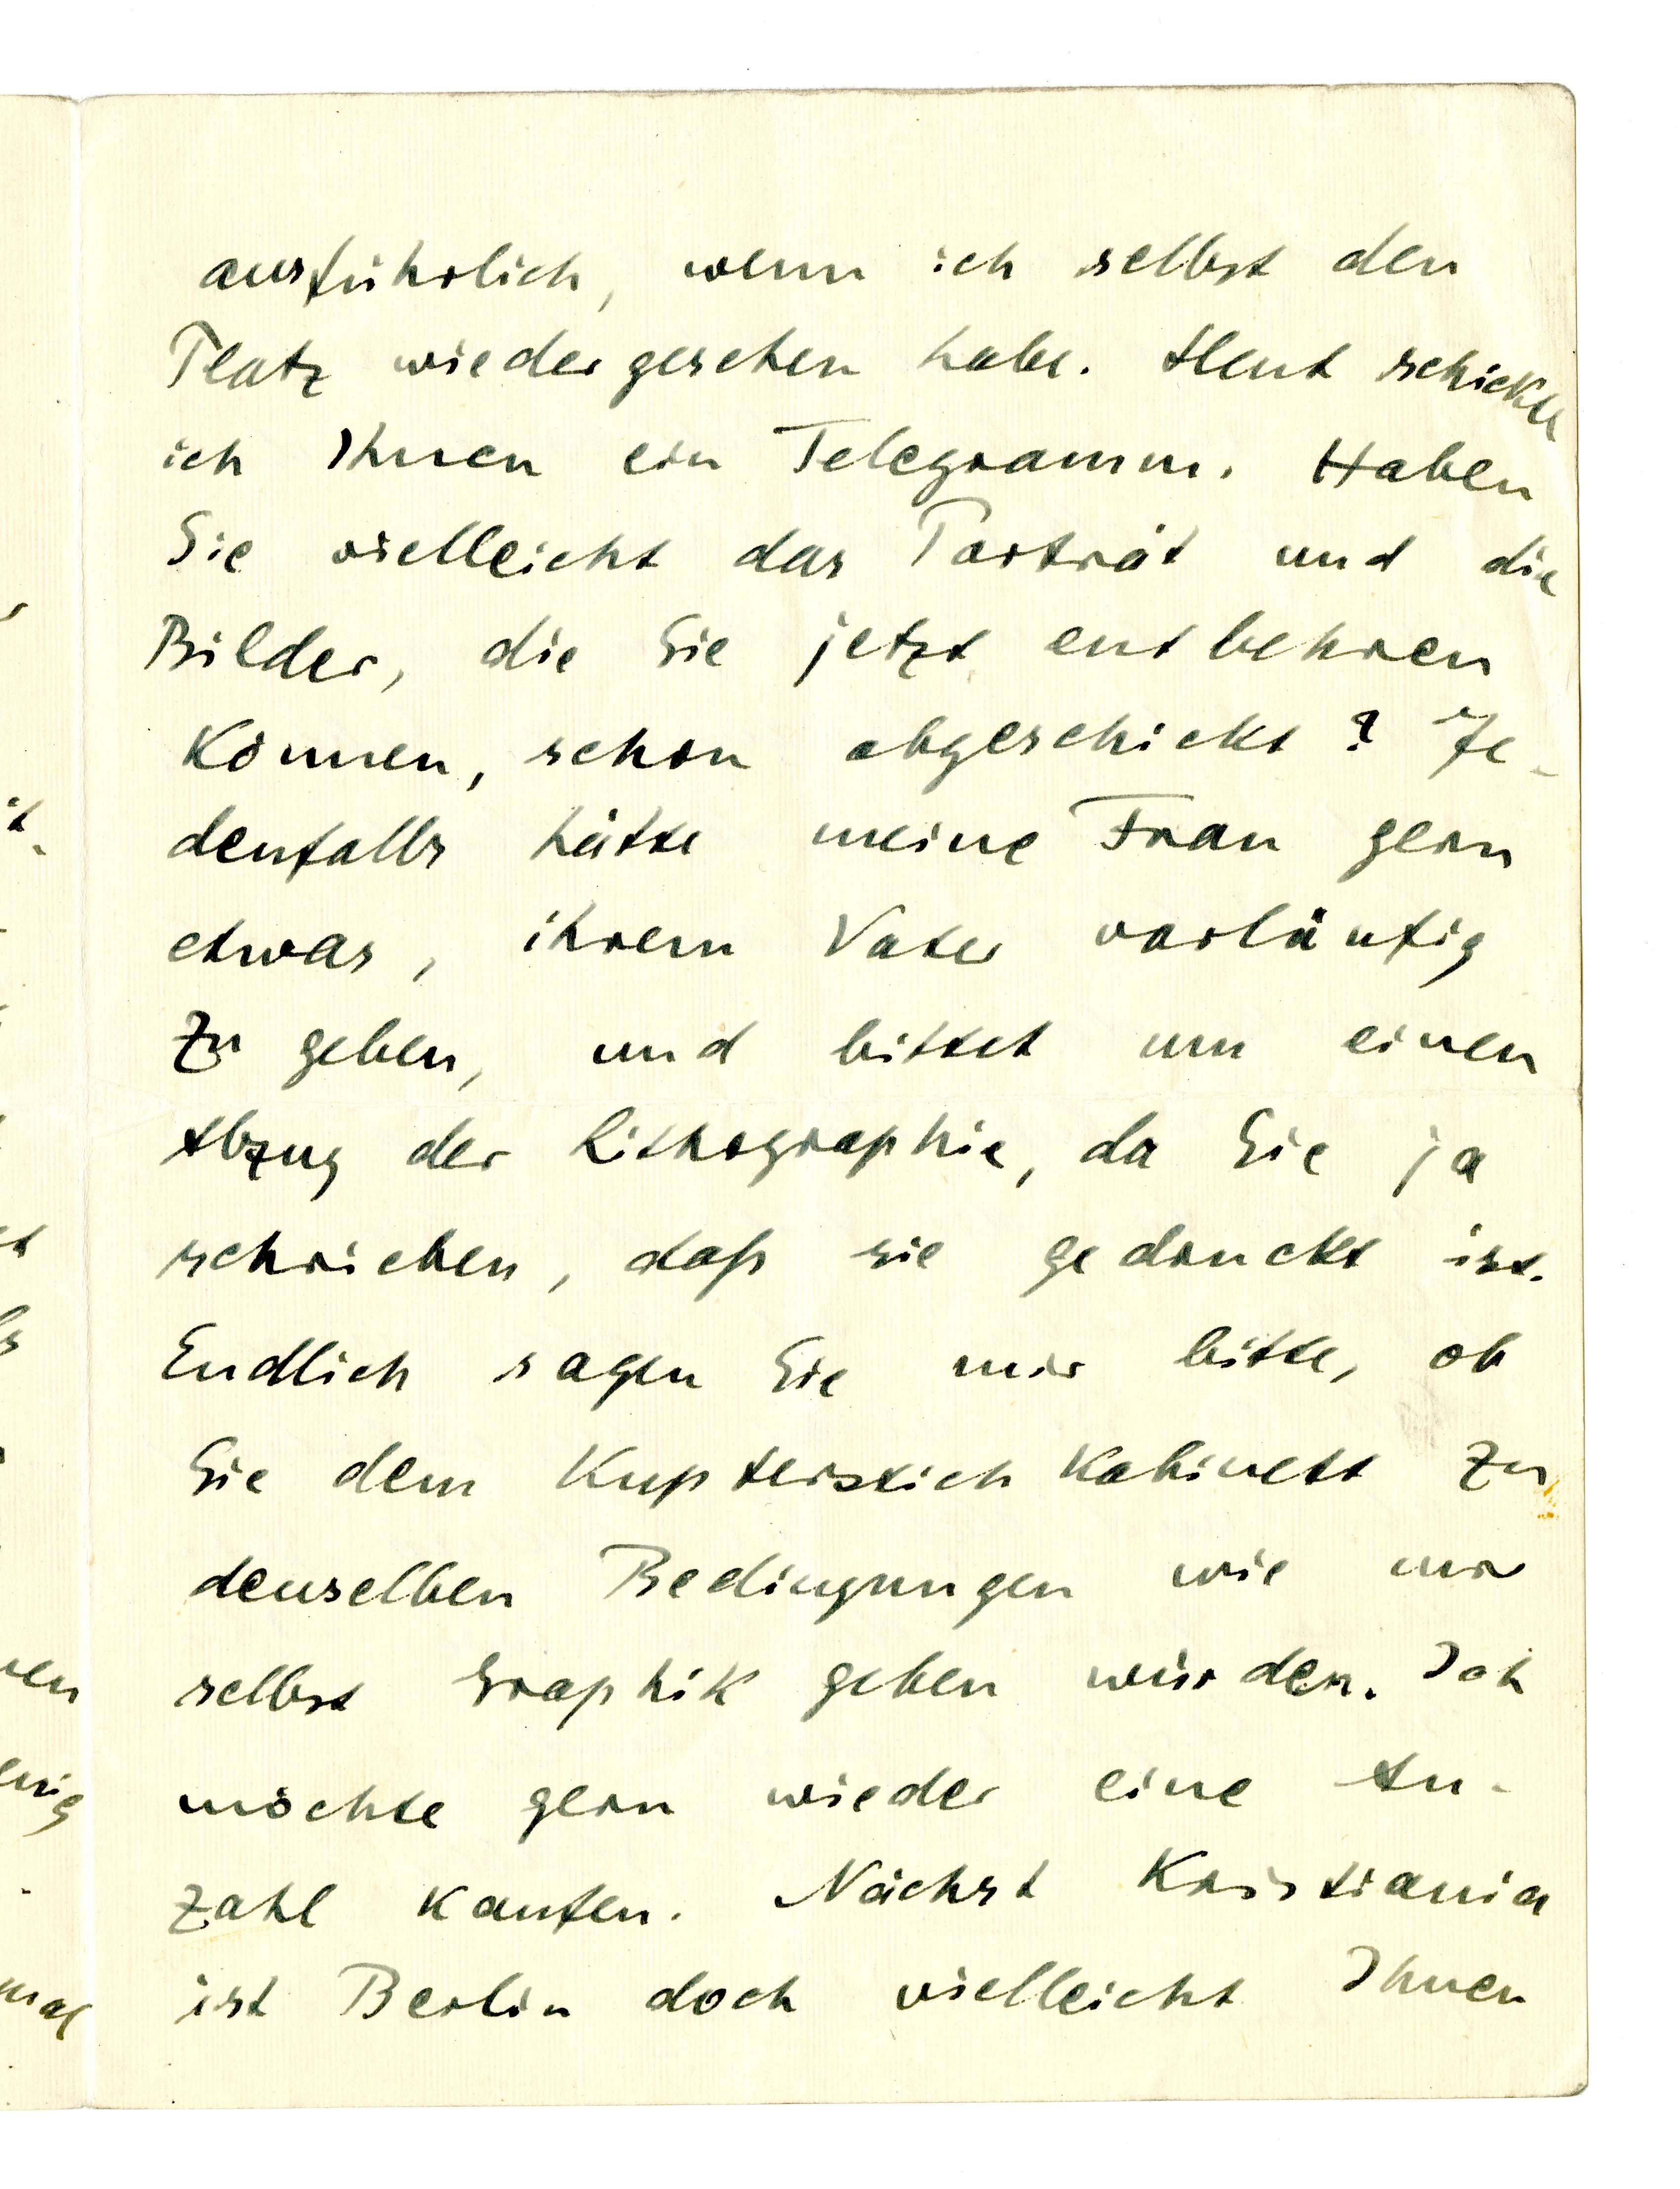 ausführlich, wenn ich selbst den
Platz wiedergesehen habe. Heut schickte
ich Ihnen ein Telegramm. Haben
Sie vielleicht das Porträt und die
Bilder, die Sie jetzt entbehren
können, schon abgeschickt? Je-
denfalls hätte meine Frau gern
etwas, ihrem Vater vorläufig
zu geben, und bittet um einen
Abzug der Lithographie, da Sie ja
schrieben, daß sie gedruckt ist.
Endlich sagen Sie mir bitte, ob
Sie dem Kupferstichkabinett zu
denselben Bedingungen wie mir
selbst Graphik geben würden. Ich
möchte gern wieder eine An-
zahl kaufen. Nächst Kristiania
ist Berlin doch vielleicht Ihnen